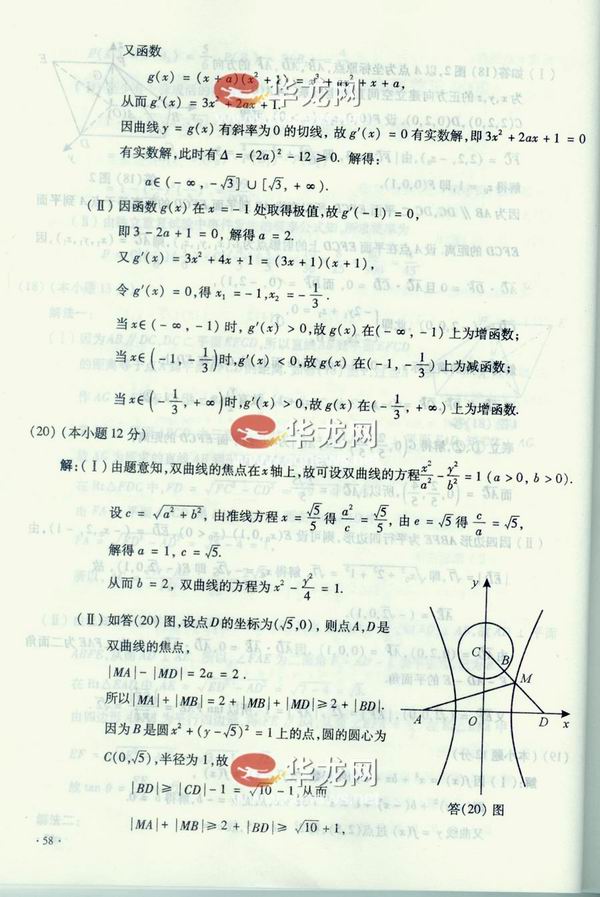 又函数
g(x) = (x + a)(x² + 1) = x³ + ax² + x + a,
从而 g′(x) = 3x² + 2ax + 1.
因曲线 y = g(x) 有斜率为 0 的切线, 故 g′(x) = 0 有实数解, 即 3x² + 2ax + 1 = 0
有实数解, 此时有 Δ = (2a)² - 12 ≥ 0. 解得:
a ∈ (-∞, -√3] ∪ [√3, +∞).
(Ⅱ) 因函数 g(x) 在 x = -1 处取得极值, 故 g′(-1) = 0,
即 3 - 2a + 1 = 0, 解得 a = 2.
又 g′(x) = 3x² + 4x + 1 = (3x + 1)(x + 1),
令 g′(x) = 0, 得 x₁ = -1, x₂ = -1/3.
当 x ∈ (-∞, -1) 时, g′(x) > 0, 故 g(x) 在 (-∞, -1) 上为增函数;
当 x ∈ (-1, -1/3) 时, g′(x) < 0, 故 g(x) 在 (-1, -1/3) 上为减函数;
当 x ∈ (-1/3, +∞) 时, g′(x) > 0, 故 g(x) 在 (-1/3, +∞) 上为增函数.
(20) (本小题 12 分)
解: (Ⅰ) 由题意知, 双曲线的焦点在 x 轴上, 故可设双曲线的方程 x²/a² - y²/b² = 1 (a > 0, b > 0).
设 c = √(a² + b²), 由准线方程 x = √5/5 得 a²/c = √5/5, 由 e = √5 得 c/a = √5,
解得 a = 1, c = √5.
从而 b = 2, 双曲线的方程为 x² - y²/4 = 1.
(Ⅱ) 如答(20)图, 设点 D 的坐标为 (√5, 0), 则点 A, D 是
双曲线的焦点,
|MA| - |MD| = 2a = 2.
所以 |MA| + |MB| = 2 + |MB| + |MD| ≥ 2 + |BD|.
因为 B 是圆 x² + (y - √5)² = 1 上的点, 圆的圆心为
C(0, √5), 半径为 1, 故
|BD| ≥ |CD| - 1 = √10 - 1, 从而
|MA| + |MB| ≥ 2 + |BD| ≥ √10 + 1,
y
C
B
M
A
O
D
x
答(20) 图
· 58 ·
华龙网
华龙网
华龙网